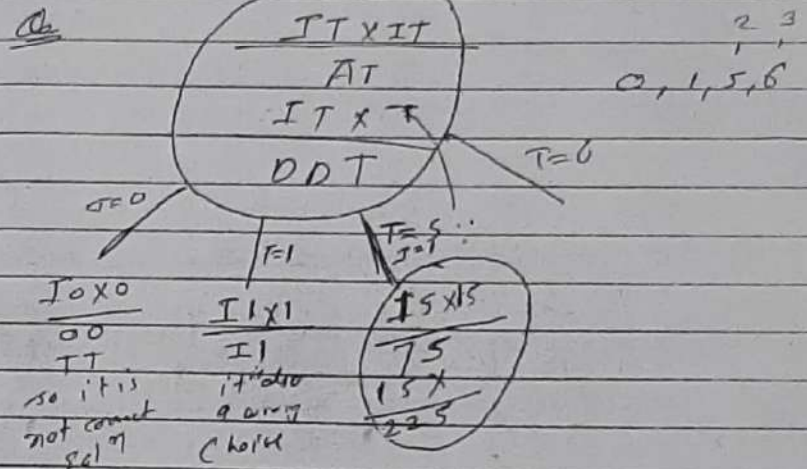 Q
IT X IT
AT
IT X T
DDT
2 3
0, 1, 5, 6
T=0
T=1
T=5 ∵
I=1
T=6
I0X0
00
TT
so it is
not correct
sol n
I1X1
I1
it also
wrong
Choise
15X15
75
15X
225